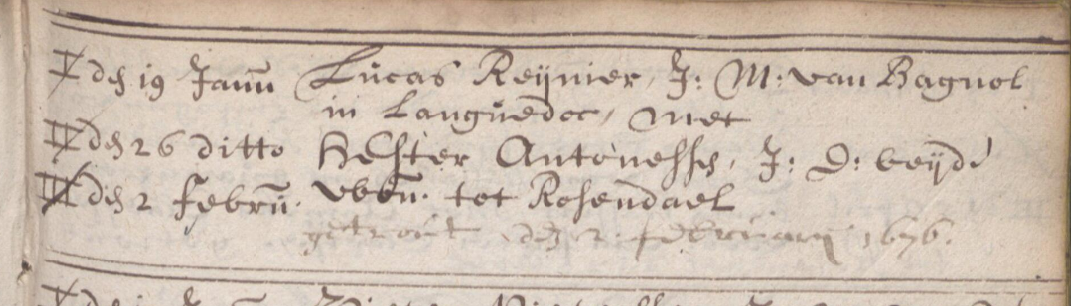 I den 19 Janu͞ Lucas Reijnier, J: M: van Bagnol
in Languedoc, met
II den 26 ditto Hester Antonessen, J: D: beijde
III den 2 Febru͞: won͞: tot Rosendael
getrout den 2 februarij 1676.